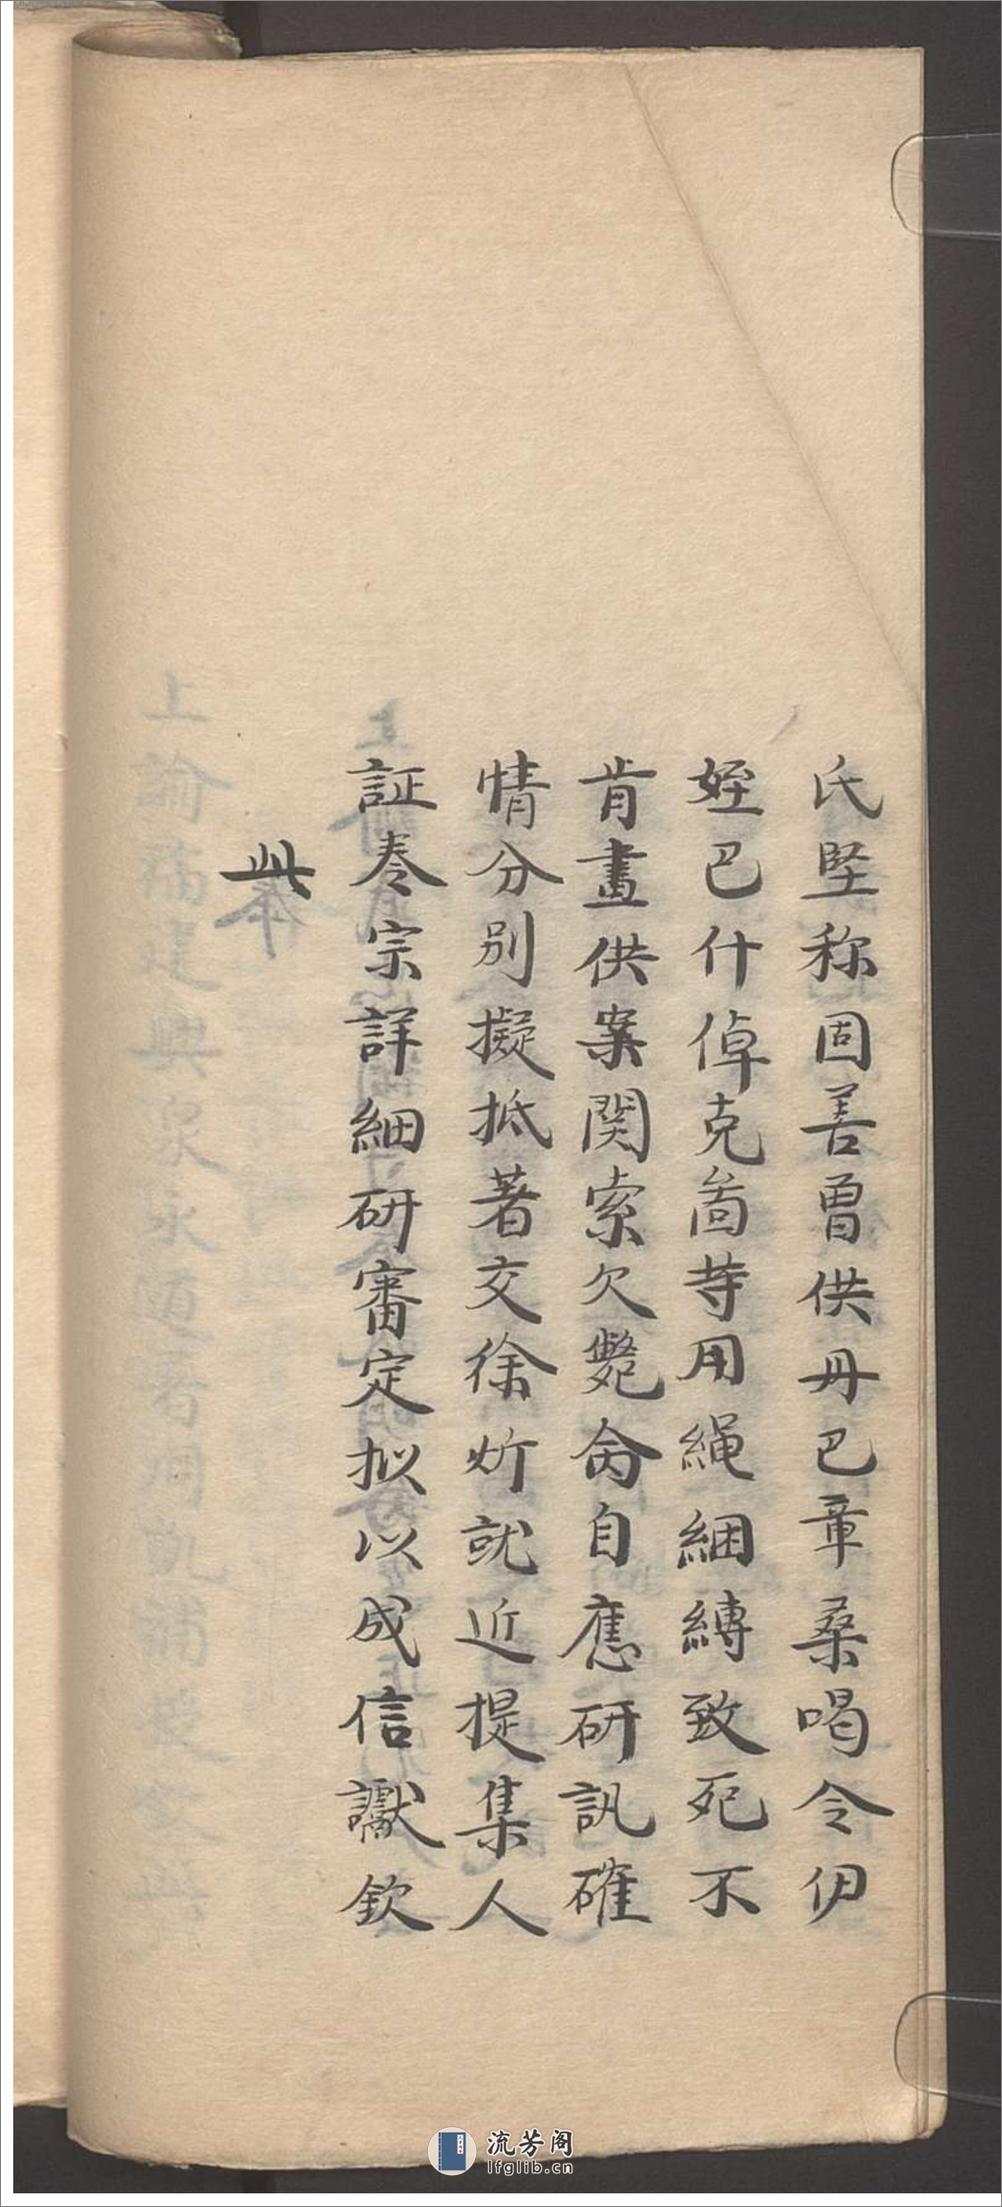 氏坚称固善曾供丹巴章桑喝令伊
姪巴什倬克啚䓁用䋲綑縛致死不
肯畫供案関索欠斃命自應研訊確
情分别擬抵著交徐炘就近提集人
証卷宗詳細研審定拟以成信讞欽
此
流芳阁
lfglib.cn